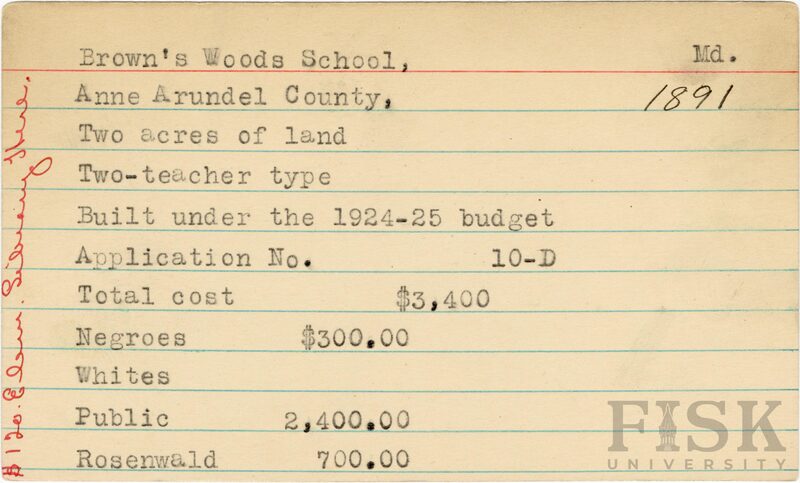 Brown's Woods School, Md.
Anne Arundel County, 1891
Two acres of land
Two-teacher type
Built under the 1924-25 budget
Application No. 10-D
Total cost $3,400
Negroes $300.00
Whites
Public 2,400.00
Rosenwald 700.00
$120. Elem. Library there.
FISK
UNIVERSITY